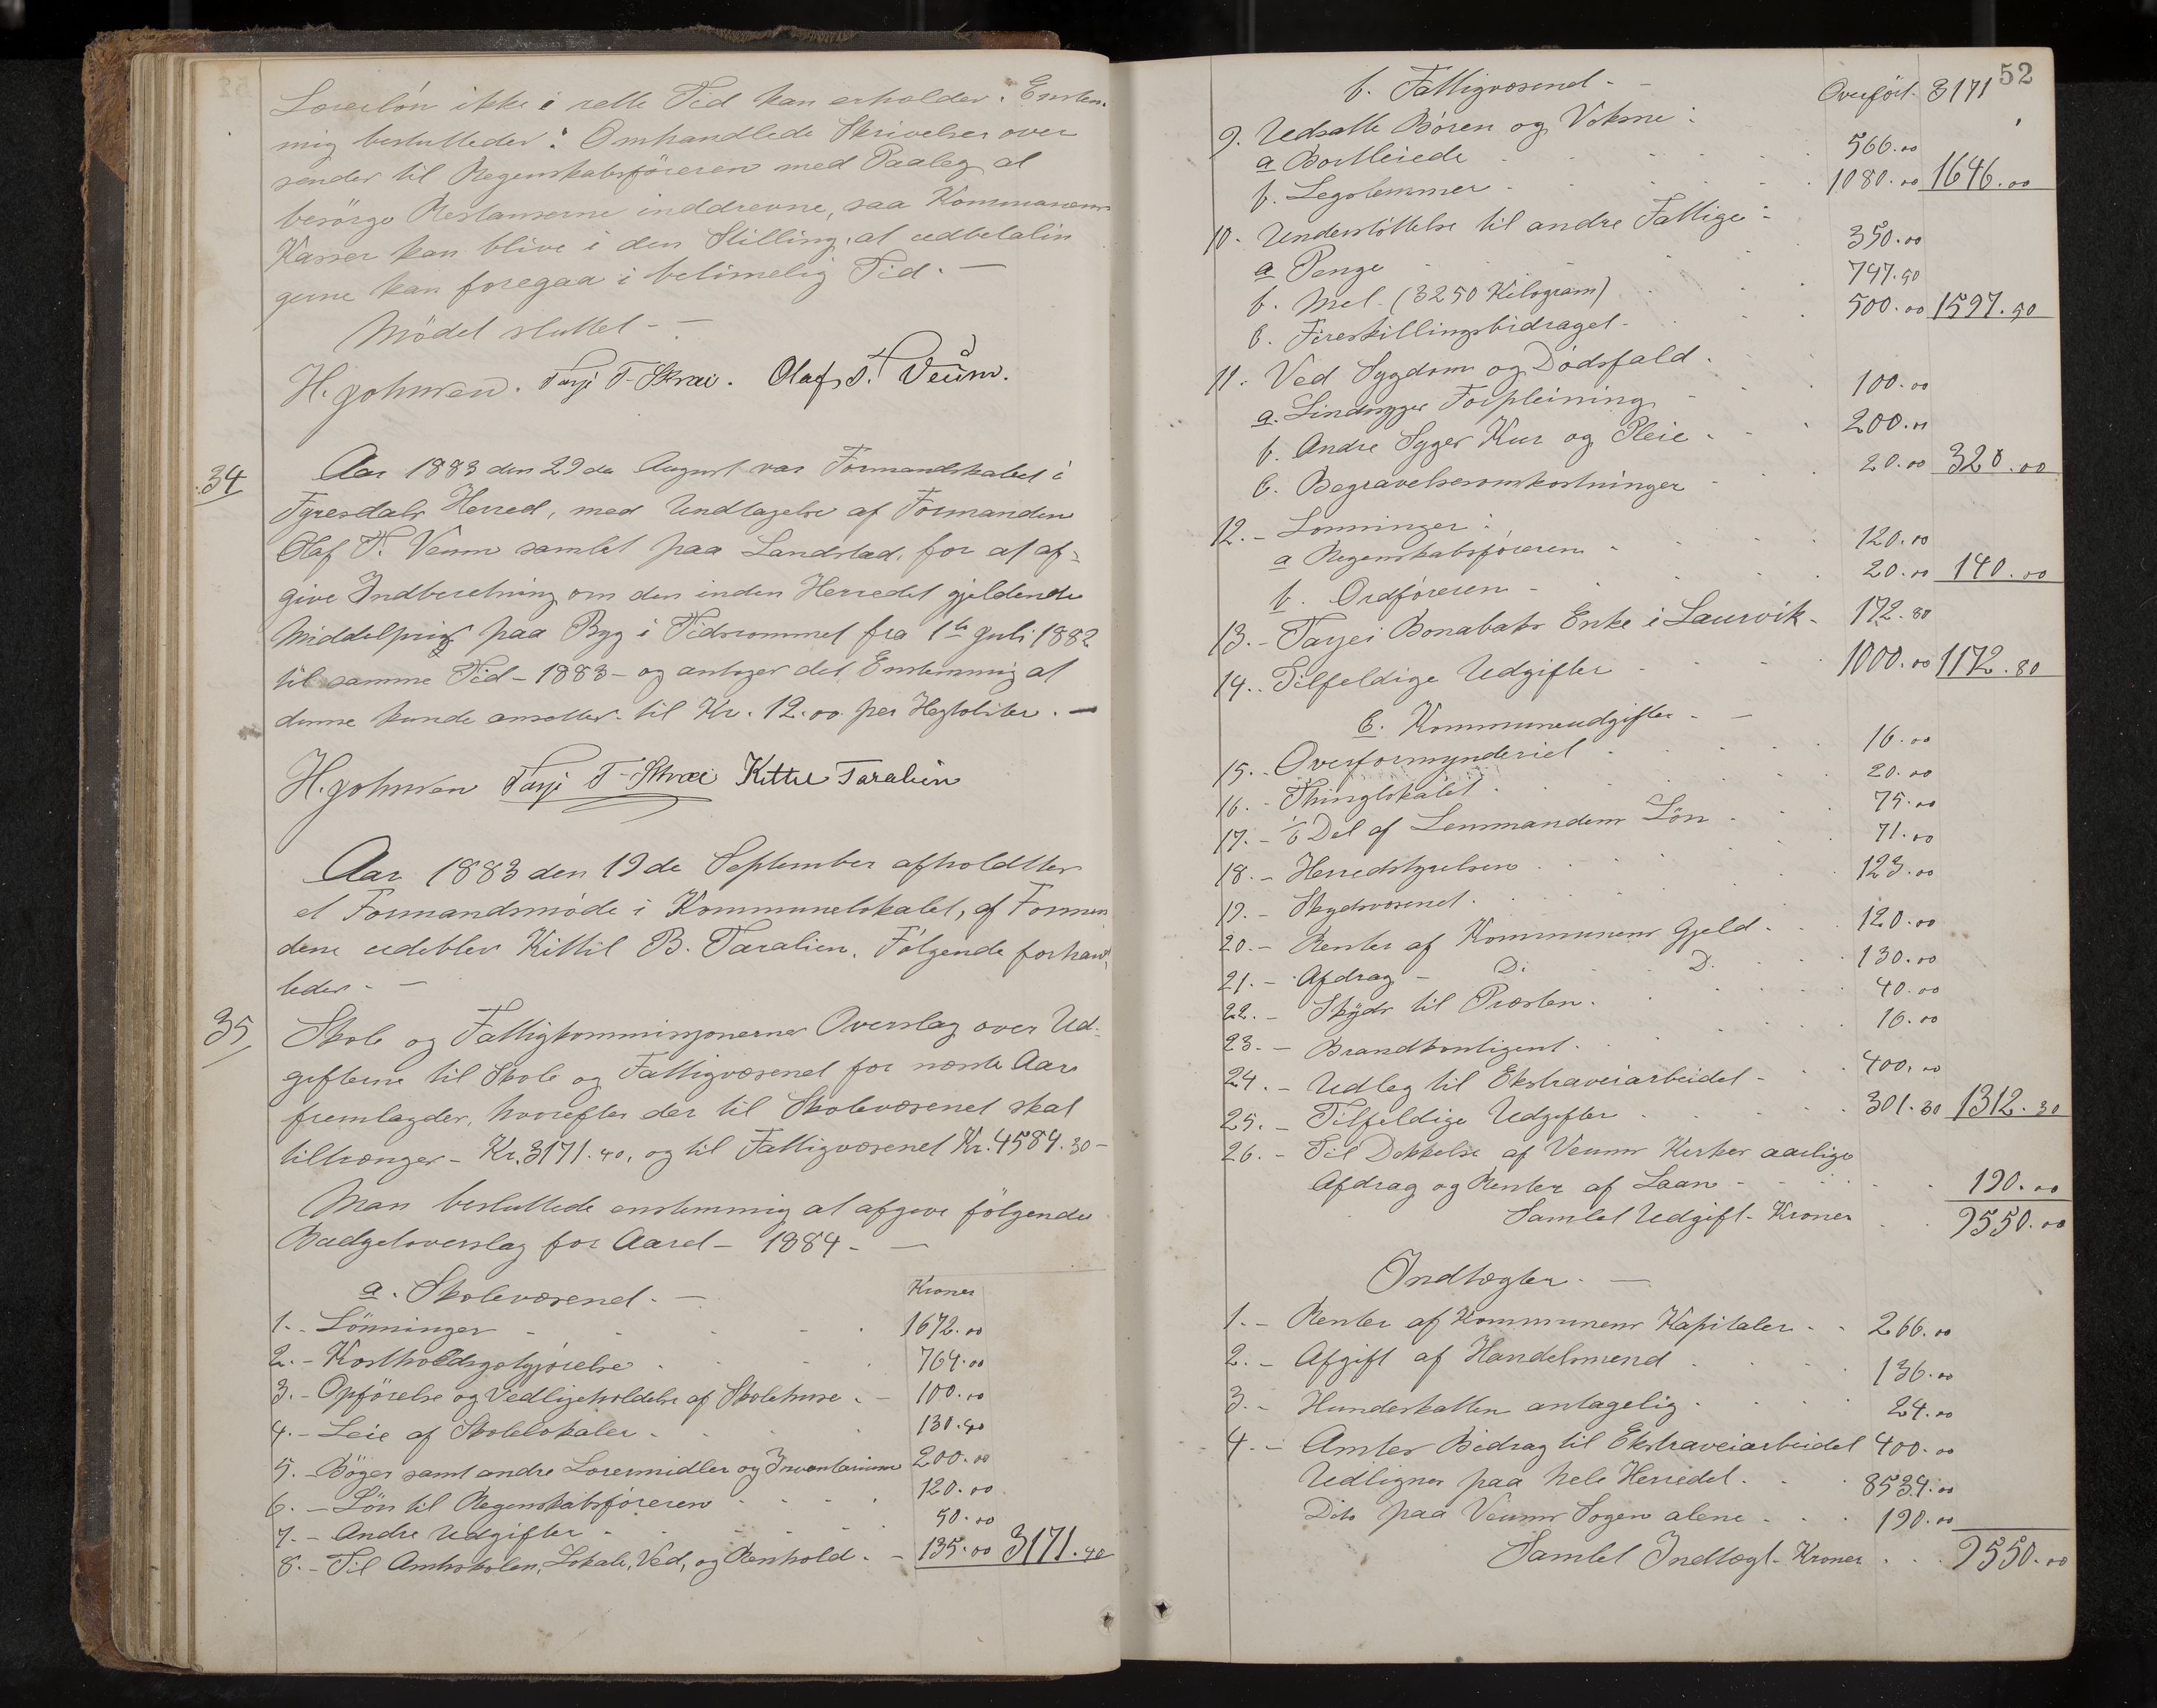 Lærerløn ikke i rette Tid kan erholdes. Enstem-
mig besluttedes: Omhandlede Skrivelser over
sendes til Regenskabsføreren med Paaleg at
besørge Restanserne inddrevne, saa Kommunens
Kasser kan blive i den Stilling, at udbetalin
gerne kan foregaa i betimelig Tid. —
Mødet sluttet —
H. Johnsen. Tarje T. Skræi. Olaf T. Veum.
34
Aar 1883 den 29de August var Formandskabet i
Fyresdals Herred, med Undtagelse af Formanden
Olaf T. Veum samlet paa Landstad, for at af-
give Indberetning om den inden Herredet gjeldende
Middelpris paa Byg i Tidsrommet fra 1te Juli 1882
til samme Tid - 1883 - og antoges det Enstemmig at
denne kunde ansættes til Kr. 12.00 per Hegtoliter. —
H. Johnsen Tarje T. Skræi Kittil Taralien
Aar 1883 den 19de September afholdtes
et Formandsmøde i Kommunelokalet, af Formen
dene udeblev Kittil B. Taralien. Følgende forhand
ledes - —
35
Skole og Fattigkommissjonernes Overslag over Ud-
gifterne til Skole og Fattigvæsenet for næste Aar
fremlagdes, hvorefter der til Skolevæsenet skal
tiltrænges - Kr. 3171.40, og til Fattigvæsenet Kr. 4584.30 -
Man besluttede enstemmig at afgive følgende
Budgetoverslag for Aaret - 1884 - —
a. Skolevæsenet. — Kroner
1. - Lønninger 1672.00
2. - Kostholdsgotgjørelse 764.00
3. - Opførelse og Vedligeholdelse af Skolehuse - 100.00
4. - Leie af Skolelokaler - 130.40
5. - Bøger samt andre Lærermidler og Inventarium 200.00
6. - Løn til Regenskabsføreren 120.00
7. - Andre Udgifter - 50.00
8. - Til Amtsskolen, Lokale, Ved, og Renhold - 135.00 3171.40
52
b. Fattigvæsenet - Overført 3171
9. Udsatte Børen og Voksne:
a Bortleiede 566.00
b. Legslemmer - 1080.00 1646.00
10. Understøttelse til andre Fattige:
a Penge 350.00
b. Mel - (3250 Kilogram) 747.50
c. Fireskillingsbidraget - 500.00 1597.50
11. Ved Sygdom og Dødsfald.
a. Sindsyges Forpleining 100.00
b. Andre Syges Kur og Pleie - 200.00
c. Begravelsesomkostninger 20.00 320.00
12. - Lønninger:
a Regenskabsføreren 120.00
b. Ordføreren - 20.00 140.00
13. - Tarjei Bonabaks Enke i Laurvik - 172.80
14. - Tilfeldige Udgifter 1000.00 1172.80
c. Kommuneudgifter - —
15. - Overformynderiet 16.00
16. - Thinglokalet 20.00
17. - 1/6 Del af Lensmandens Løn 75.00
18. - Herredstyrelsen 71.00
19. - Skydsvæsenet 123.00
20. - Renter af Kommunens Gjeld - 120.00
21. - Afdrag - D. D. 130.00
22. - Skyds til Præsten 40.00
23. - Brandkontigent 16.00
24. - Udleg til Ekstraveiarbeidet - 400.00
25. - Tilfeldige Udgifter 301.30 1312.30
26. - Til Dekkelse af Veums Kirkes aarlige
Afdrag og Renter af Laan - 190.00
Samlet Udgift - Kroner 9550.00
Indtægter. —
1. - Renter af Kommunens Kapitaler - 266.00
2. - Afgift af Handelsmend 136.00
3. - Hundeskatten antagelig 24.00
4. - Amtets Bidrag til Ekstraveiarbeidet 400.00
Udlignes paa hele Herredet 8534.00
Dito paa Veums Sogen alene 190.00
Samlet Indtægt - Kroner 9550.00